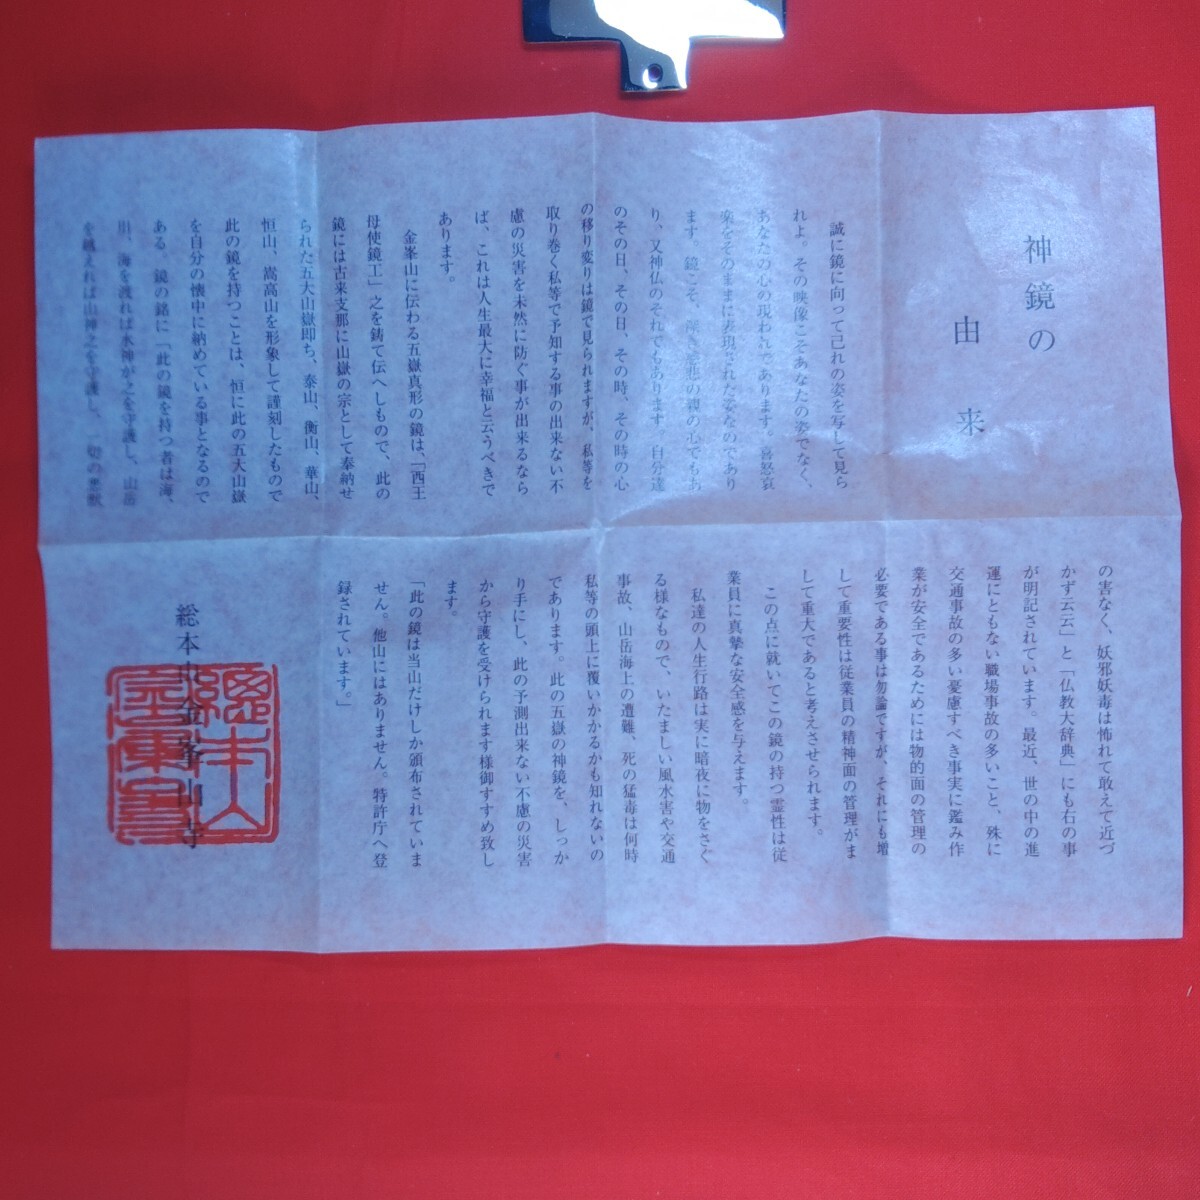 神鏡の
由来
誠に鏡に向って己れの姿を写して見ら
れよ。その映像こそあなたの姿でなく、
あなたの心の現われであります。喜怒哀
楽をそのままに表現された姿なのであり
ます。鏡こそ、深き慈悲の親の心でもあ
り、又神仏のそれでもあります。自分達
のその日、その日、その時、その時の心
の移り変りは鏡で見られますが、私等を
取り巻く私等で予知する事の出来ない不
慮の災害を未然に防ぐ事が出来るなら
ば、これは人生最大に幸福と云うべきで
あります。
金峯山に伝わる五嶽真形の鏡は、「西王
母使鏡工」之を鋳て伝へしもので、此の
鏡には古来支那に山嶽の宗として奉納せ
られた五大山嶽即ち、泰山、衡山、華山、
恒山、嵩高山を形象して謹刻したもので
此の鏡を持つことは、恒に此の五大山嶽
を自分の懐中に納めている事となるので
ある。鏡の銘に「此の鏡を持つ者は海、
川、海を渡れば水神が之を守護し、山岳
を越えれば山神之を守護し、一切の悪獣
の害なく、妖邪妖毒は怖れて敢えて近づ
かず云云」と「仏教大辞典」にも右の事
が明記されています。最近、世の中の進
運にともない職場事故の多いこと、殊に
交通事故の多い憂慮すべき事実に鑑み作
業が安全であるためには物的面の管理の
必要である事は勿論ですが、それにも増
して重要性は従業員の精神面の管理がま
して重大であると考えさせられます。
この点に就いてこの鏡の持つ霊性は従
業員に真摯な安全感を与えます。
私達の人生行路は実に暗夜に物をさぐ
る様なもので、いたましい風水害や交通
事故、山岳海上の遭難、死の猛毒は何時
私等の頭上に覆いかかるかも知れないの
であります。此の五嶽の神鏡を、しっか
り手にし、此の予測出来ない不慮の災害
から守護を受けられます様御すすめ致し
ます。
「此の鏡は当山だけしか頒布されていま
せん。他山にはありません。特許庁へ登
録されています。」
総本山金峯山寺
總本山
金峯寺